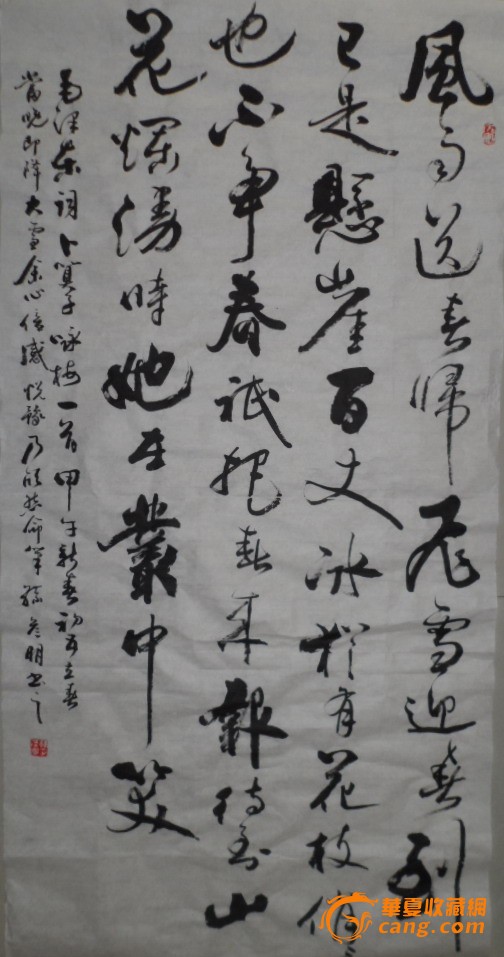 風雨送春歸飛雪迎春到
已是懸崖百丈冰猶有花枝俏〻
也不爭春祇把春來報待到山
花爛漫時她在叢中笑
毛澤東詞卜算子咏梅一首甲午新春初五立春
當晚即降大雪余心倍感悅豫乃欣然命筆明書之
華夏收藏網
cang.com